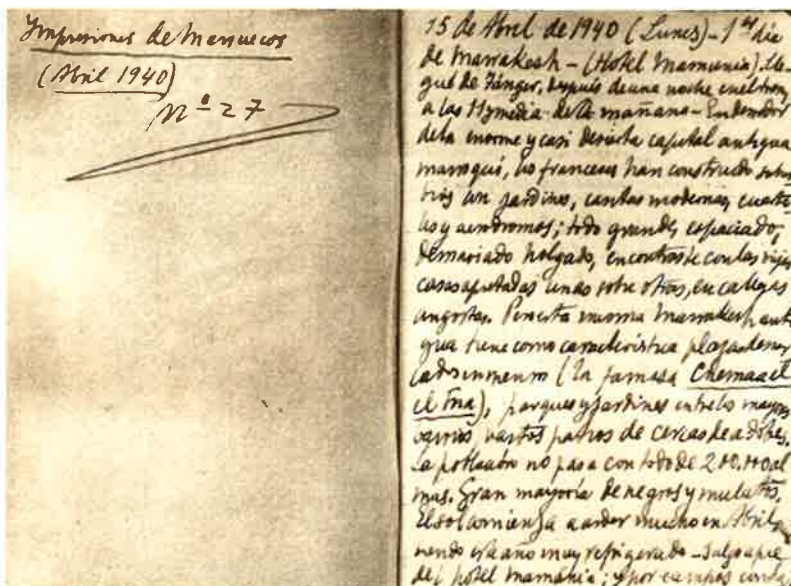 Impresiones de Marruecos
(Abril 1940)
Nº 27
15 de Abril de 1940 (Lunes) - 1er día
de Marrakesh - (Hotel Mamunia). Lle-
gué de Tánger, después de una noche en el tren,
a las 11 y media de la mañana - En derredor
de la enorme y casi desierta capital antigua
marroquí, los franceses han construido
con jardines, casitas modernas, cuarte-
les y aerodromos; todo grande, espaciado,
demasiado holgado, en contraste con las viejas
casas apretadas unas sobre otras, en callejas
angostas. Pero esta misma Marrakesh anti-
gua tiene como característica plazas
(la famosa Chemaa el
el Fna), parques y jardines entre los mayores
barrios, vastos patios de cercas de adobes.
La población no pasa con todo de 200.000 al
mas. Gran mayoría de negros y mulatos.
El sol comienza a arder mucho en Abril,
este año muy refrigerado - Salgo a pie
del hotel Mamunia; y por campos